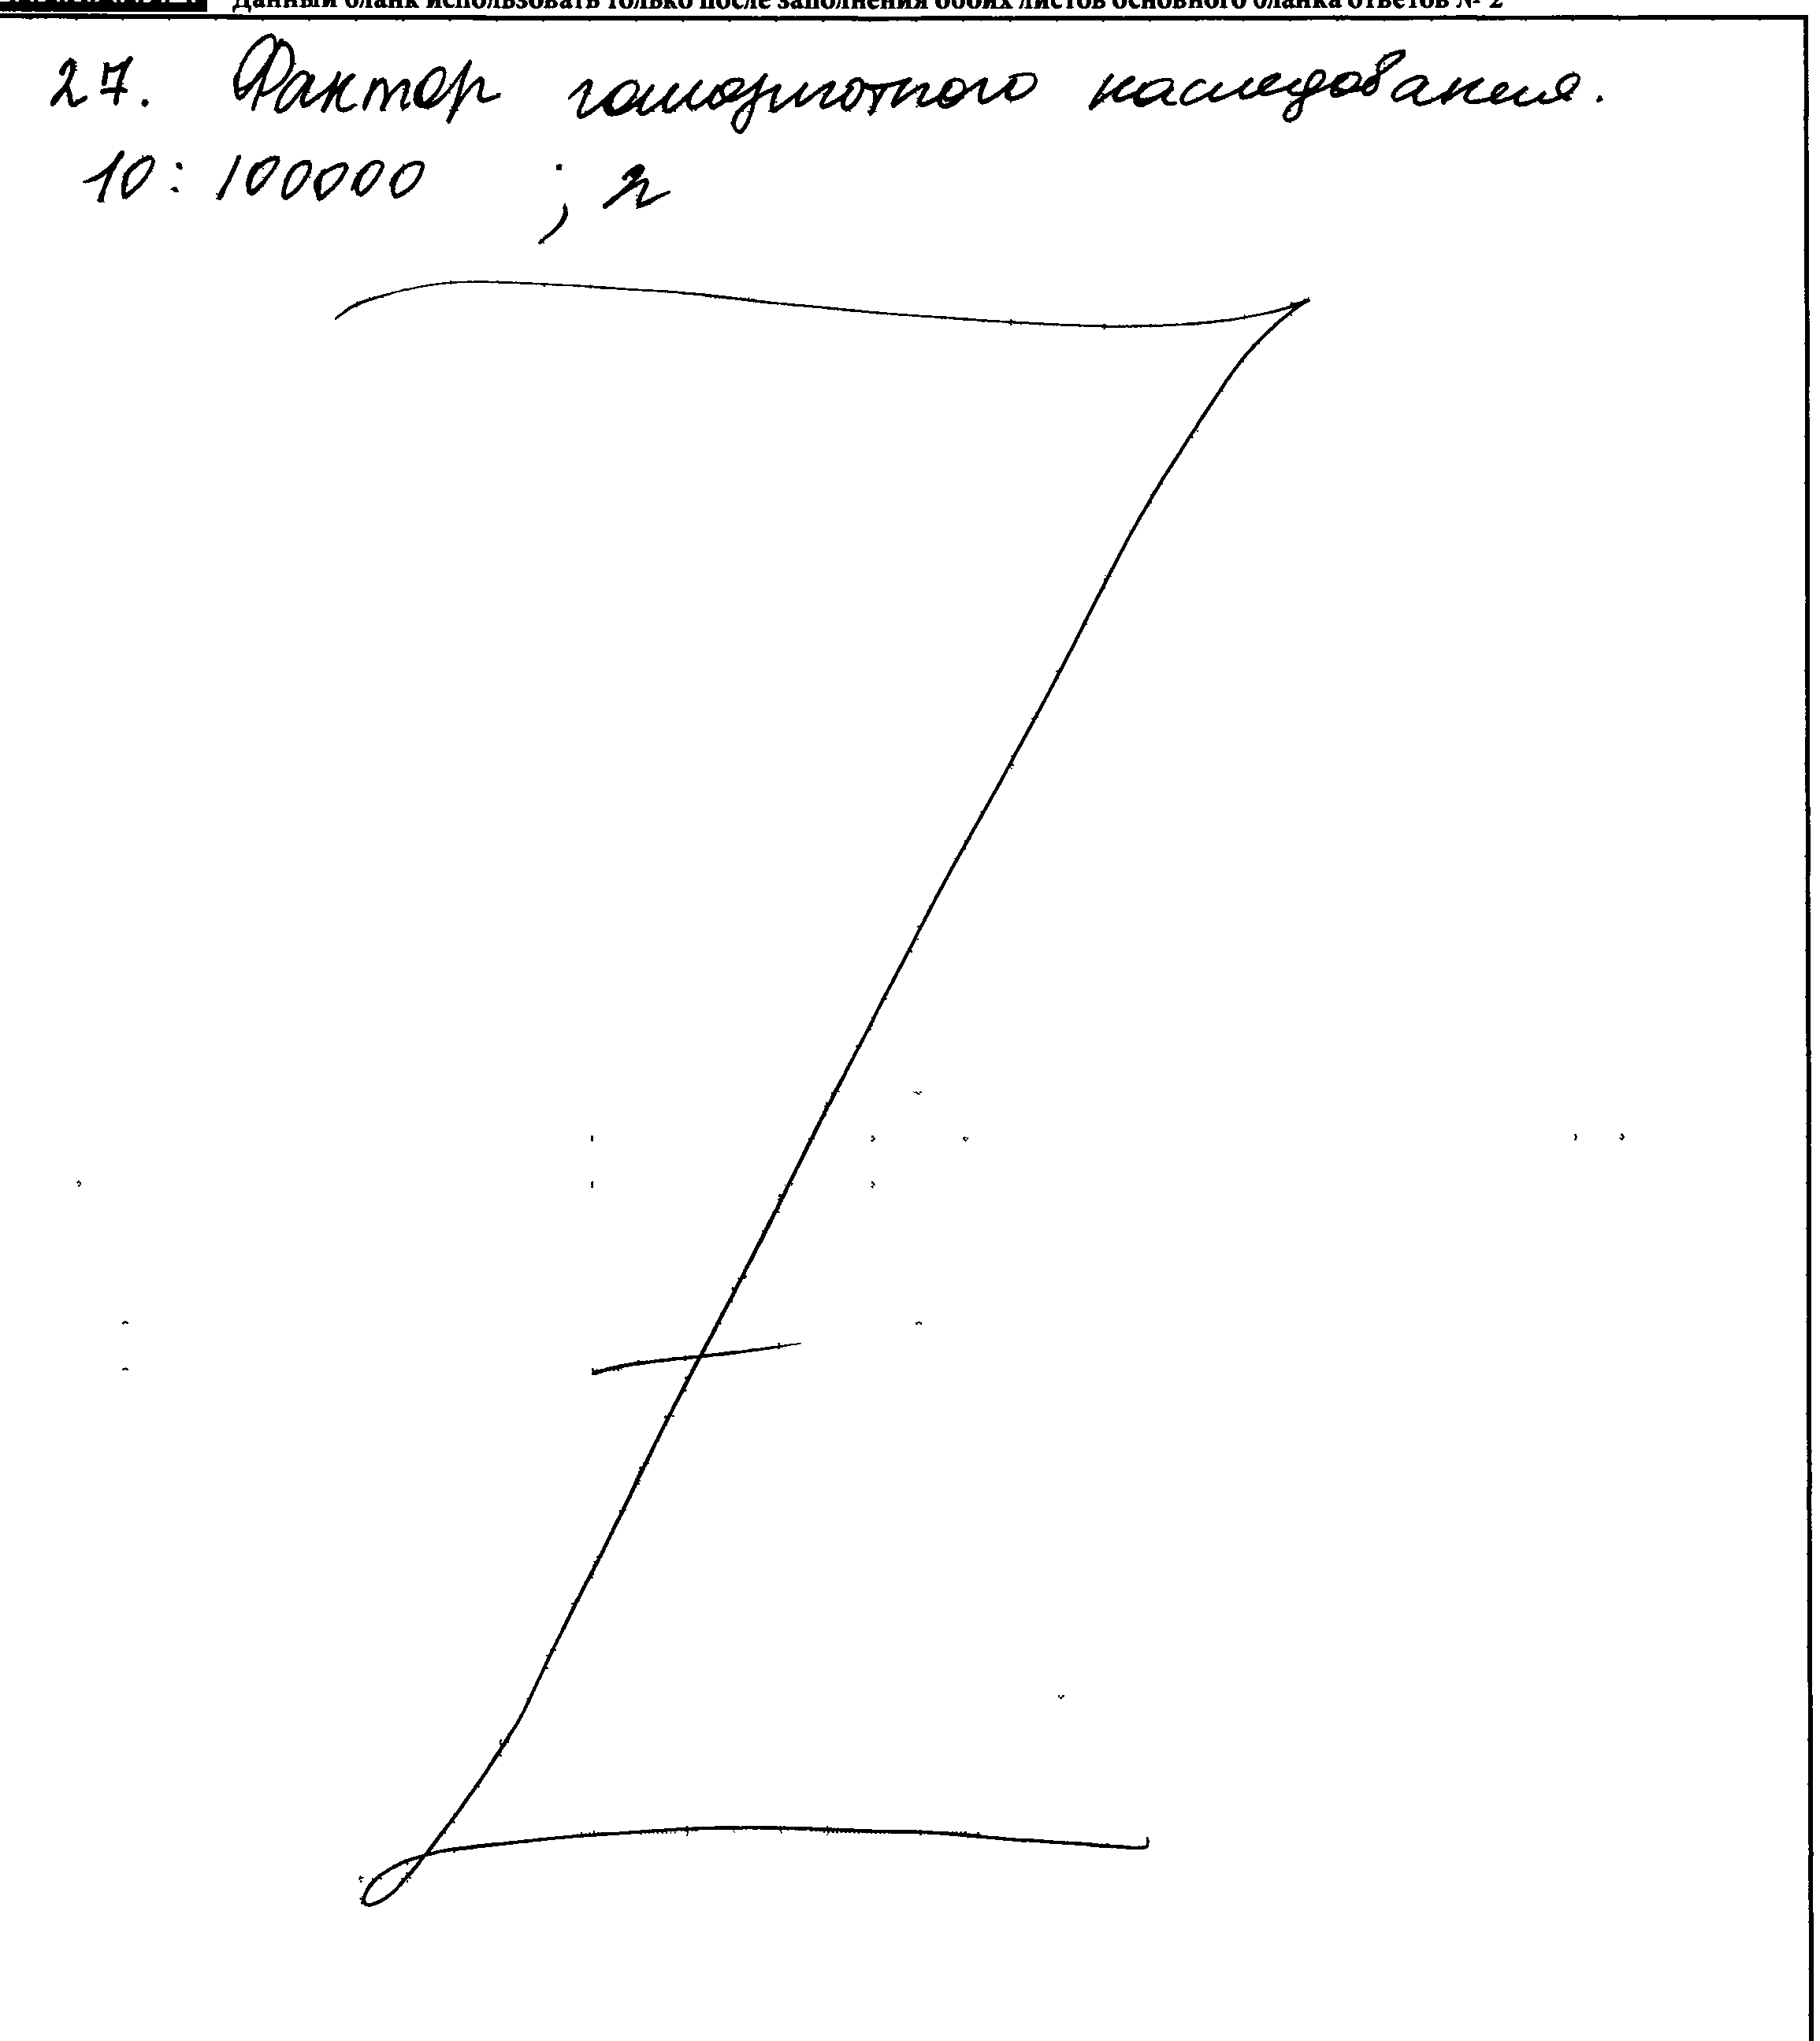 Данный бланк использовать только после заполнения обоих листов основного бланка ответов № 2
27. Фактор гомозиготного наследования.
10:100000 ; г